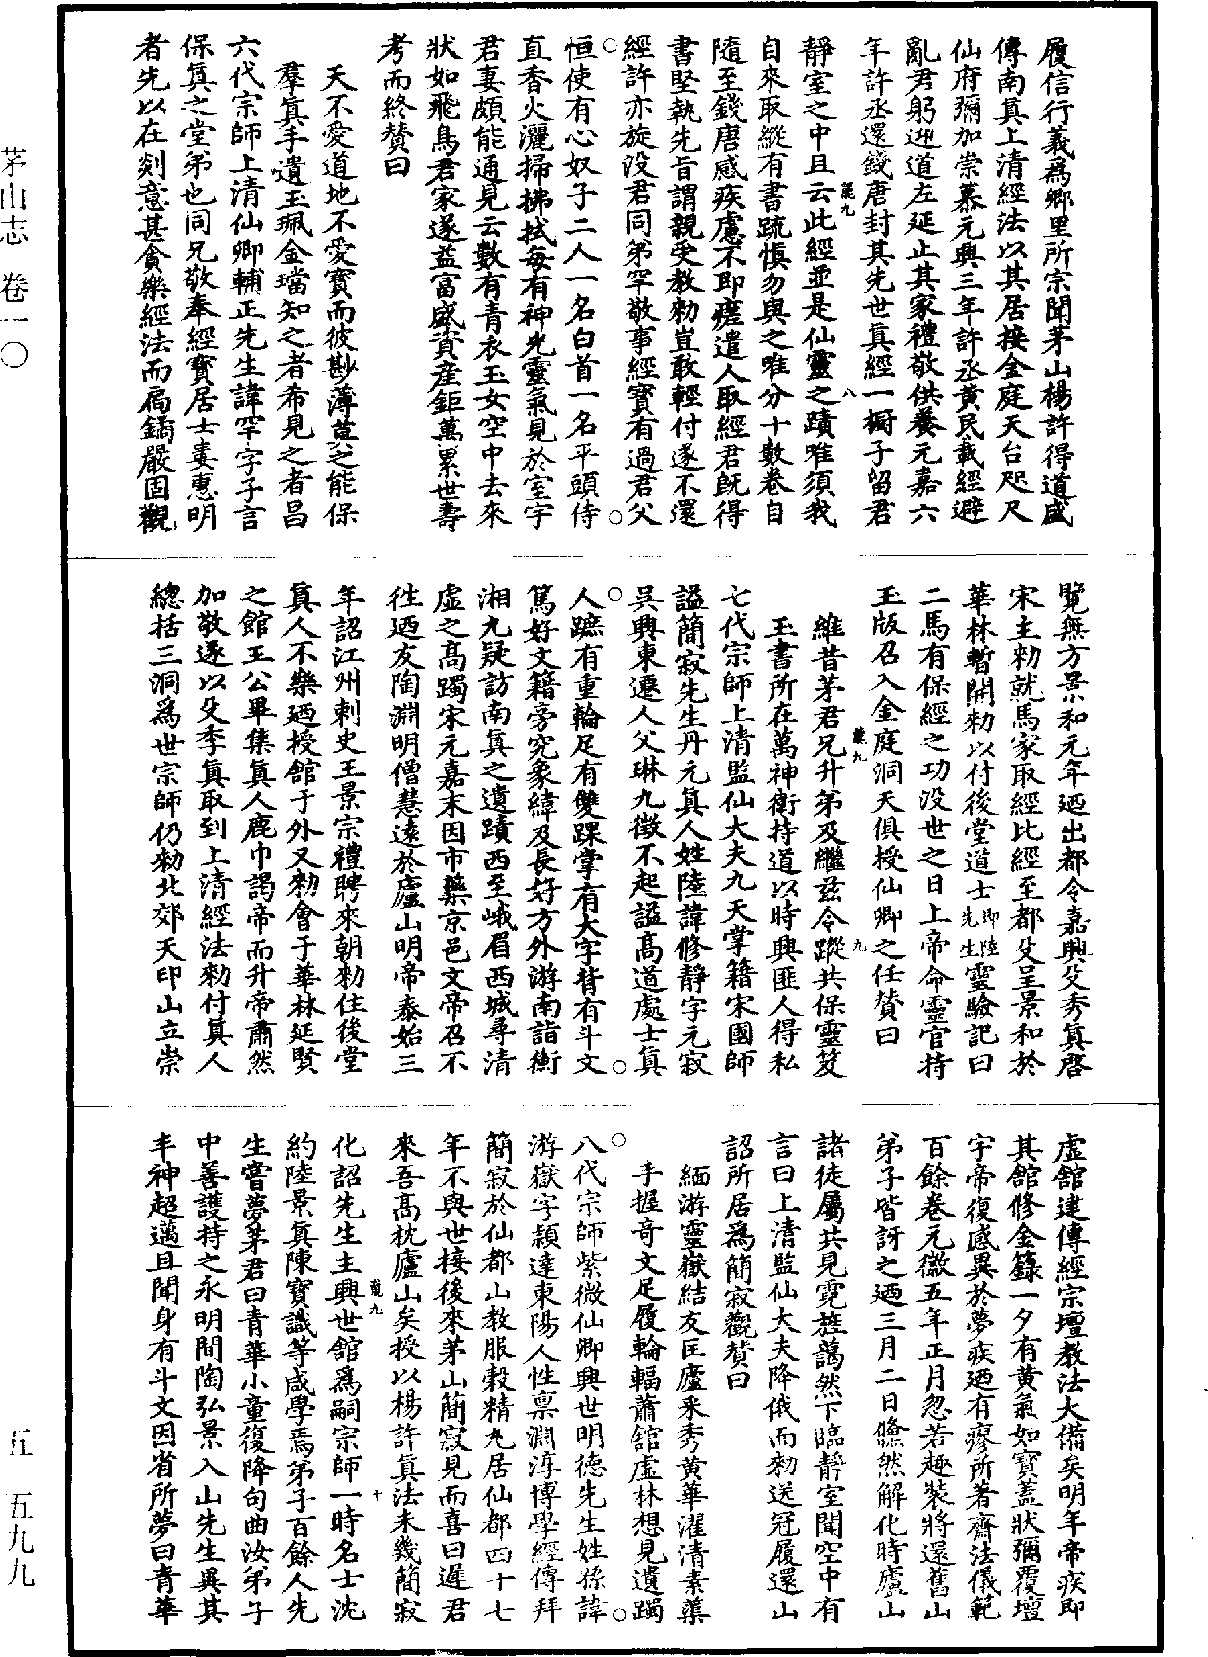 履信行義為鄉里所宗聞茅山楊許得道盛
傳南真上清經法以其居接金庭天台咫尺
仙府彌加崇慕元興三年許丞黃民載經避
亂君躬迎道左延止其家禮敬供養元嘉六
年許丞還錢唐封其先世真經一櫥子留君
靜室之中且云此經並是仙靈之蹟唯須我
自來取縱有書疏慎勿與之唯分十數卷自
隨至錢唐感疾慮不即瘥遣人取經君既得
書堅執先旨謂親受教勑豈敢輕付遂不還
經許亦旋沒君同弟罕敬事經寶有過君父
恒使有心奴子二人一名白首一名平頭侍
直香火灑掃拂拭每有神光靈氣見於室宇
君妻頗能通見云數有青衣玉女空中去來
狀如飛鳥君家遂益富盛資產鉅萬累世壽
考而終贊曰
天不愛道地不愛寶而彼尠薄荳之能保
羣真手遺玉珮金璫知之者希見之者昌
六代宗師上清仙卿輔正先生諱罕字子言
保真之堂弟也同兄敬奉經寶居士婁惠明
者先以在剡意甚貪樂經法而扃鐍嚴固觀
覽無方景和元年迺出都令嘉興殳季真啓
宋主勑就馬家取經比經至都殳呈景和於
華林暫開勑以付後堂道士即陸先生靈驗記曰
二馬有保經之功没世之日上帝命靈官持
玉版召入金庭洞天俱授仙卿之任贊曰
維昔茅君兄升弟及繼茲令蹤共保靈笈
玉書所在萬神衛持道以時興匪人得私
七代宗師上清監仙大夫九天掌籍宋國師
謚簡寂先生丹元真人姓陸諱修靜字元寂
吳興東遷人父琳九徵不起謚高道處士真
人蹠有重輪足有雙踝掌有大字背有斗文
篤好文籍旁究象緯及長好方外游南詣衡
湘九疑訪南真之遺蹟西至峨眉西城尋清
虛之高躅宋元嘉末因市藥京邑文帝召不
徃迺友陶淵明僧慧遠於廬山明帝泰始三
年詔江州刺史王景宗禮聘來朝勑住後堂
真人不樂迺授館于外又勑會于華林延賢
之館王公畢集真人鹿巾謁帝而升帝肅然
加敬遂以殳季真取到上清經法勑付真人
總括三洞為世宗師仍勑北郊天印山立崇
虛舘建傳經宗壇教法大備矣明年帝疾即
其舘修金籙一夕有黃氣如寶蓋狀彌覆壇
宇帝復感異於夢疾迺有瘳所著齋法儀範
百餘卷元徽五年正月忽若趣裝將還舊山
弟子皆訝之迺三月二日儵然解化時廬山
諸徒屬共見霓旌藹然下臨靜室聞空中有
言曰上清監仙大夫降俄而勑送冠履還山
詔所居為簡寂觀贊曰
緬游靈嶽結友匡廬采秀黃華濯清素蕖
手握奇文足履輪輻蕭舘虛林想見遺躅
八代宗師紫微仙卿興世明德先生姓孫諱
游嶽字穎達東陽人性稟淵淳博學經傳拜
簡寂於仙都山教服穀精丸居仙都四十七
年不與世接後來茅山簡寂見而喜曰遲君
來吾高枕廬山矣授以楊許真法未幾簡寂
化詔先生主興世舘為嗣宗師一時名士沈
約陸景真陳寶識等咸學焉弟子百餘人先
生嘗夢茅君曰青華小童復降句曲汝弟子
中善護持之永明間陶弘景入山先生異其
丰神超邁且聞身有斗文因省所夢曰青華
茅山志 卷一〇
五 五九九